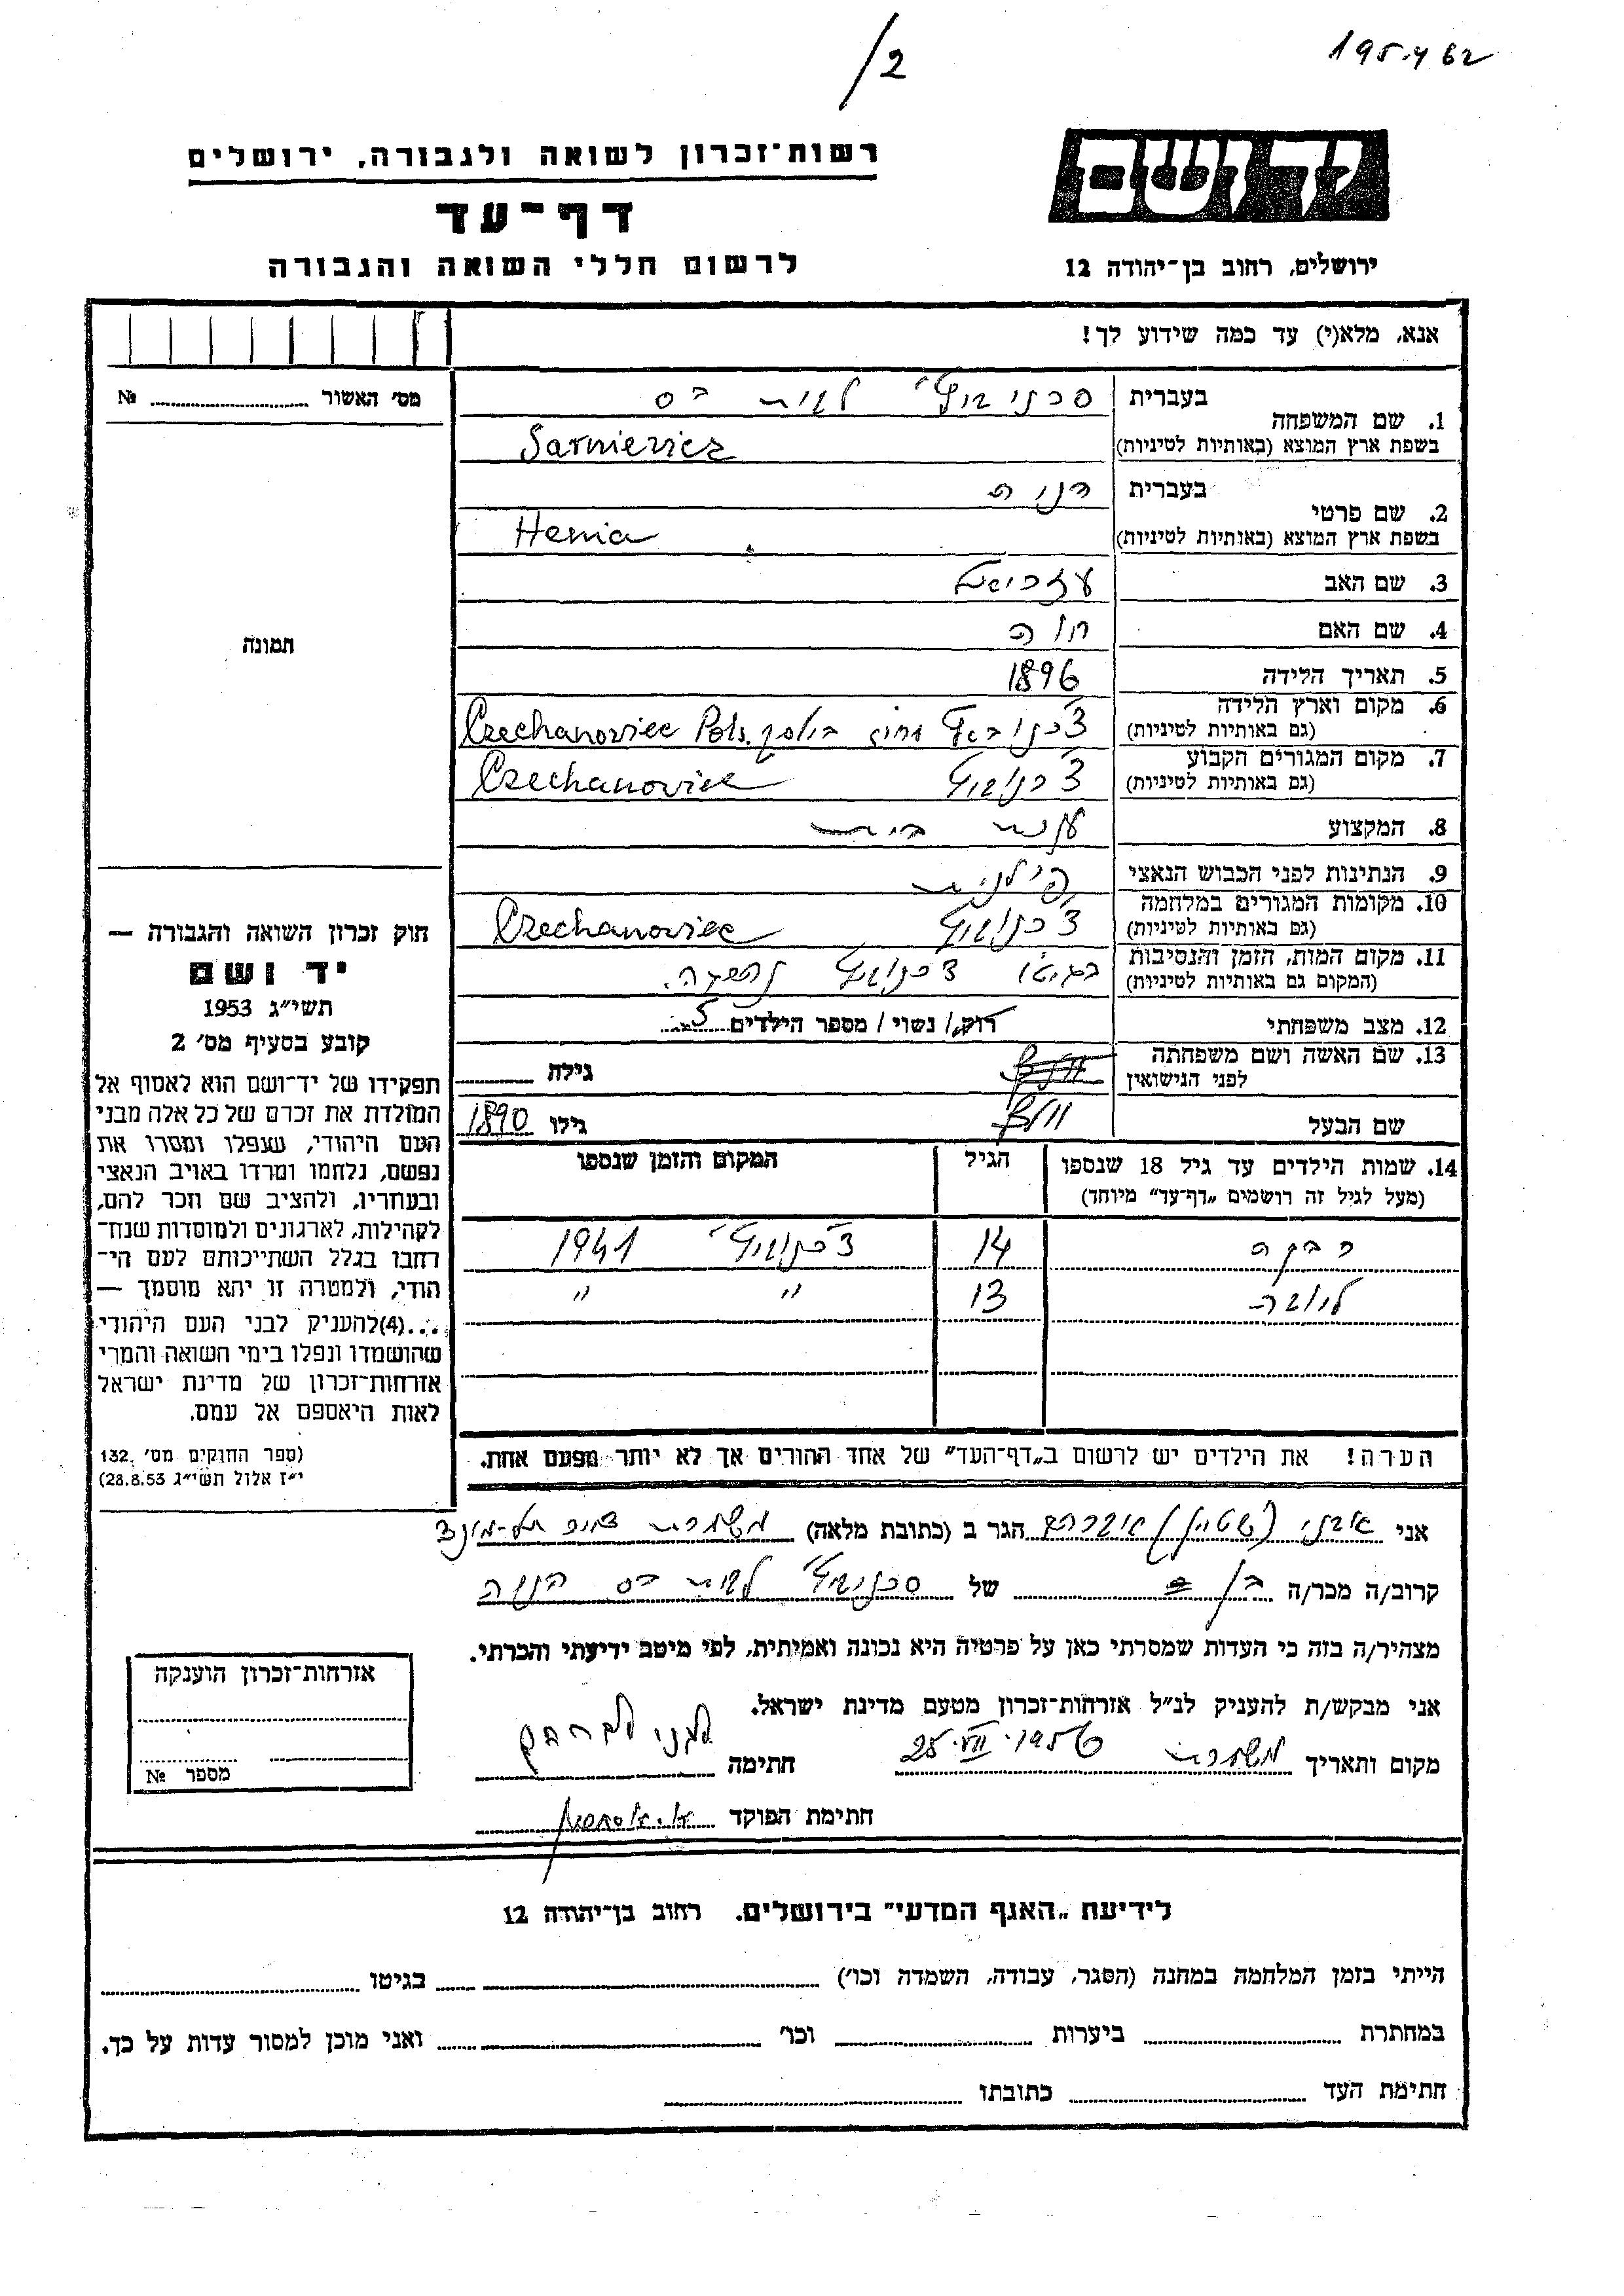 195462
/2
רשות־זכרון לשואה ולגבורה, ירושלים
יד ושם
דף־עד
לרשום חללי השואה והגבורה
ירושלים, רחוב בן־יהודה 12
אנא, מלא(י) עד כמה שידוע לך!
מס׳ האשור № 
1. שם המשפחה
בעברית
בשפת ארץ המוצא (באותיות לטיניות) Sarnieviez
2. שם פרטי
בעברית הניה
בשפת ארץ המוצא (באותיות לטיניות) Henia
3. שם האב
4. שם האם חוה
5. תאריך הלידה 1896
6. מקום וארץ הלידה
(גם באותיות לטיניות) Czechanoviec Pols.
7. מקום המגורים הקבוע
(גם באותיות לטיניות) Czechanoviec
8. המקצוע עקרת בית
9. הנתינות לפני הכבוש הנאצי פולנית
10. מקומות המגורים במלחמה
(גם באותיות לטיניות) Czechanoviec
11. מקום המות, הזמן והנסיבות
(המקום גם באותיות לטיניות)
12. מצב משפחתי רוק/ נשוי / מספר הילדים 5
13. שם האשה ושם משפחתה
לפני הנישואין
גילה
שם הבעל
גילו 1890
תמונה
14. שמות הילדים עד גיל 18 שנספו
(מעל לגיל זה רושמים „דף־עד״ מיוחד)
הגיל
המקום והזמן שנספו
רבקה 14 1941
ליובה 13 ״ ״
הערה! את הילדים יש לרשום ב„דף־העד״ של אחד ההורים אך לא יותר מפעם אחת.
חוק זכרון השואה והגבורה —
יד ושם
תשי״ג 1953
קובע בסעיף מס׳ 2
תפקידו של יד־ושם הוא לאסוף אל
המולדת את זכרם של כל אלה מבני
העם היהודי, שנפלו ומסרו את
נפשם, נלחמו ומרדו באויב הנאצי
ובעוזריו, ולהציב שם וזכר להם,
לקהילות, לארגונים ולמוסדות שנח־
רחבו בגלל השתייכותם לעם הי־
הודי, ולמטרה זו יהא מוסמך —
...(4) להעניק לבני העם היהודי
שהושמדו ונפלו בימי השואה והמרי
אזרחות־זכרון של מדינת ישראל
לאות היאספם אל עמם.
(ספר החוקים מס׳ 132,
י״ז אלול תשי״ג 28.8.53)
אני אבני (שטיין) אברהם הגר ב (כתובת מלאה) משמרת תל-מונד
קרוב/ה מכר/ה בן של
מצהיר/ה בזה כי העדות שמסרתי כאן על פרטיה היא נכונה ואמיתית, לפי מיטב ידיעתי והכרתי.
אני מבקש/ת להעניק לנ״ל אזרחות־זכרון מטעם מדינת ישראל.
מקום ותאריך משמרת 25.VII.1956 חתימה אבני אברהם
חתימת הפוקד
אזרחות־זכרון הוענקה
מספר №
לידיעת „האגף המדעי״ בירושלים. רחוב בן־יהודה 12
הייתי בזמן המלחמה במחנה (הסגר, עבודה, השמדה וכו׳) בגיטו
במחתרת ביערות וכו׳ ואני מוכן למסור עדות על כך.
חתימת העד כתובתו